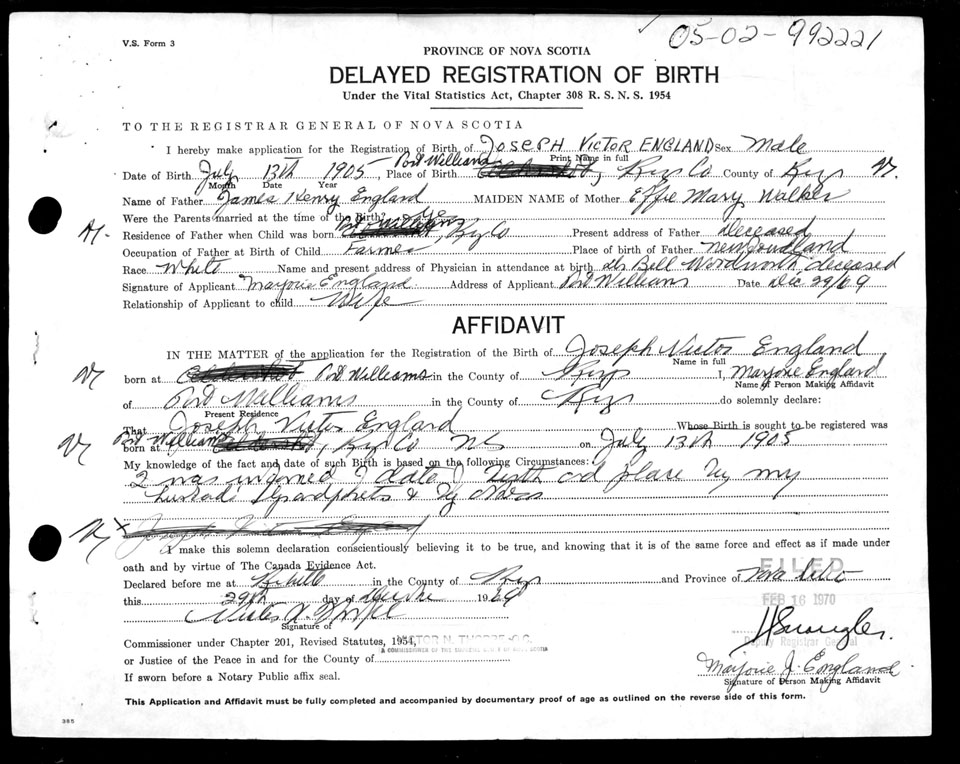 V.S. Form 3
05-02-992221
PROVINCE OF NOVA SCOTIA
DELAYED REGISTRATION OF BIRTH
Under the Vital Statistics Act, Chapter 308 R. S. N. S. 1954
TO THE REGISTRAR GENERAL OF NOVA SCOTIA
I hereby make application for the Registration of Birth of JOSEPH VICTOR ENGLAND Sex Male
Print Name in full
Date of Birth July 13th 1905, Place of Birth Port Williams, Kings Co County of Kings
Month Date Year
Name of Father James Henry England MAIDEN NAME of Mother Effie Mary Walker
Were the Parents married at the time of the Birth?
Residence of Father when Child was born Port Williams, Kings Co Present address of Father deceased
Occupation of Father at Birth of Child Farmer Place of birth of Father Newfoundland
Race White Name and present address of Physician in attendance at birth Dr Bell Woodworth, deceased
Signature of Applicant Marjorie England Address of Applicant Port Williams Date Dec 29/69
Relationship of Applicant to child Wife
AFFIDAVIT
IN THE MATTER of the application for the Registration of the Birth of Joseph Victor England
Name in full
born at Port Williams in the County of Kings I, Marjorie England
Name of Person Making Affidavit
of Port Williams in the County of Kings do solemnly declare:
Present Residence
That Joseph Victor England Whose Birth is sought to be registered was
born at Port Williams, Kings Co NS on July 13th 1905
My knowledge of the fact and date of such Birth is based on the following Circumstances:
I was informed of date of birth and place by my
husband's Grandparents & by others
I make this solemn declaration conscientiously believing it to be true, and knowing that it is of the same force and effect as if made under
oath and by virtue of The Canada Evidence Act.
Declared before me at in the County of Kings and Province of Nova Scotia
FILED
this 29th day of 1969
FEB 16 1970
Signature of
Deputy Registrar General
Commissioner under Chapter 201, Revised Statutes, 1954,
VICTOR N. THORPE Q.C.
A COMMISSIONER OF THE SUPREME COURT OF NOVA SCOTIA
or Justice of the Peace in and for the County of
Marjorie J. England
If sworn before a Notary Public affix seal.
Signature of Person Making Affidavit
This Application and Affidavit must be fully completed and accompanied by documentary proof of age as outlined on the reverse side of this form.
385